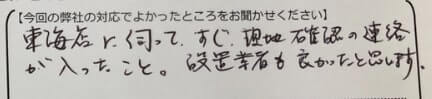 【今回の弊社の対応でよかったところをお聞かせください】
東海店に伺って、すぐ、現地確認の連絡
が入ったこと。設置業者も良かったと思います。